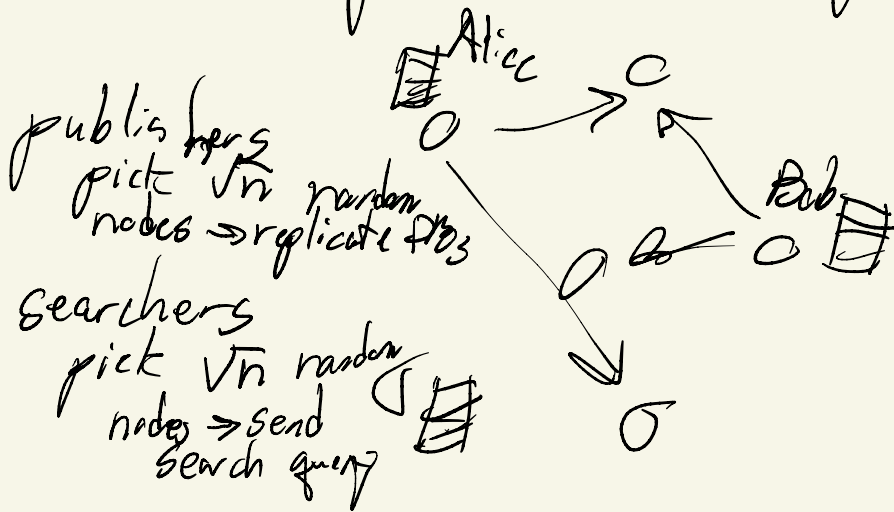 Alice
publishers
pick √n random
nodes → replicate
Bob
searchers
pick √n random
nodes → send
search query